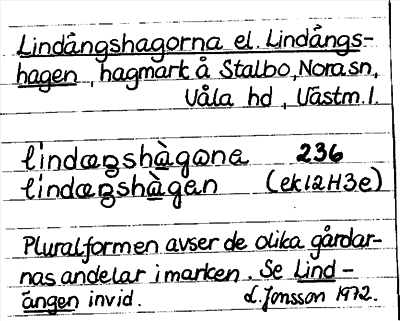 Lindängshagorna el. Lindängs-
hagen, hagmark å Stalbo, Nora sn,
Våla hd, Västm. l.
lindæŋshàgɷna 236
lindæŋshàgan (ek 12H3e)
Pluralformen avser de olika gårdar-
nas andelar i marken. Se Lind-
ängen invid. L. Jonsson 1972.